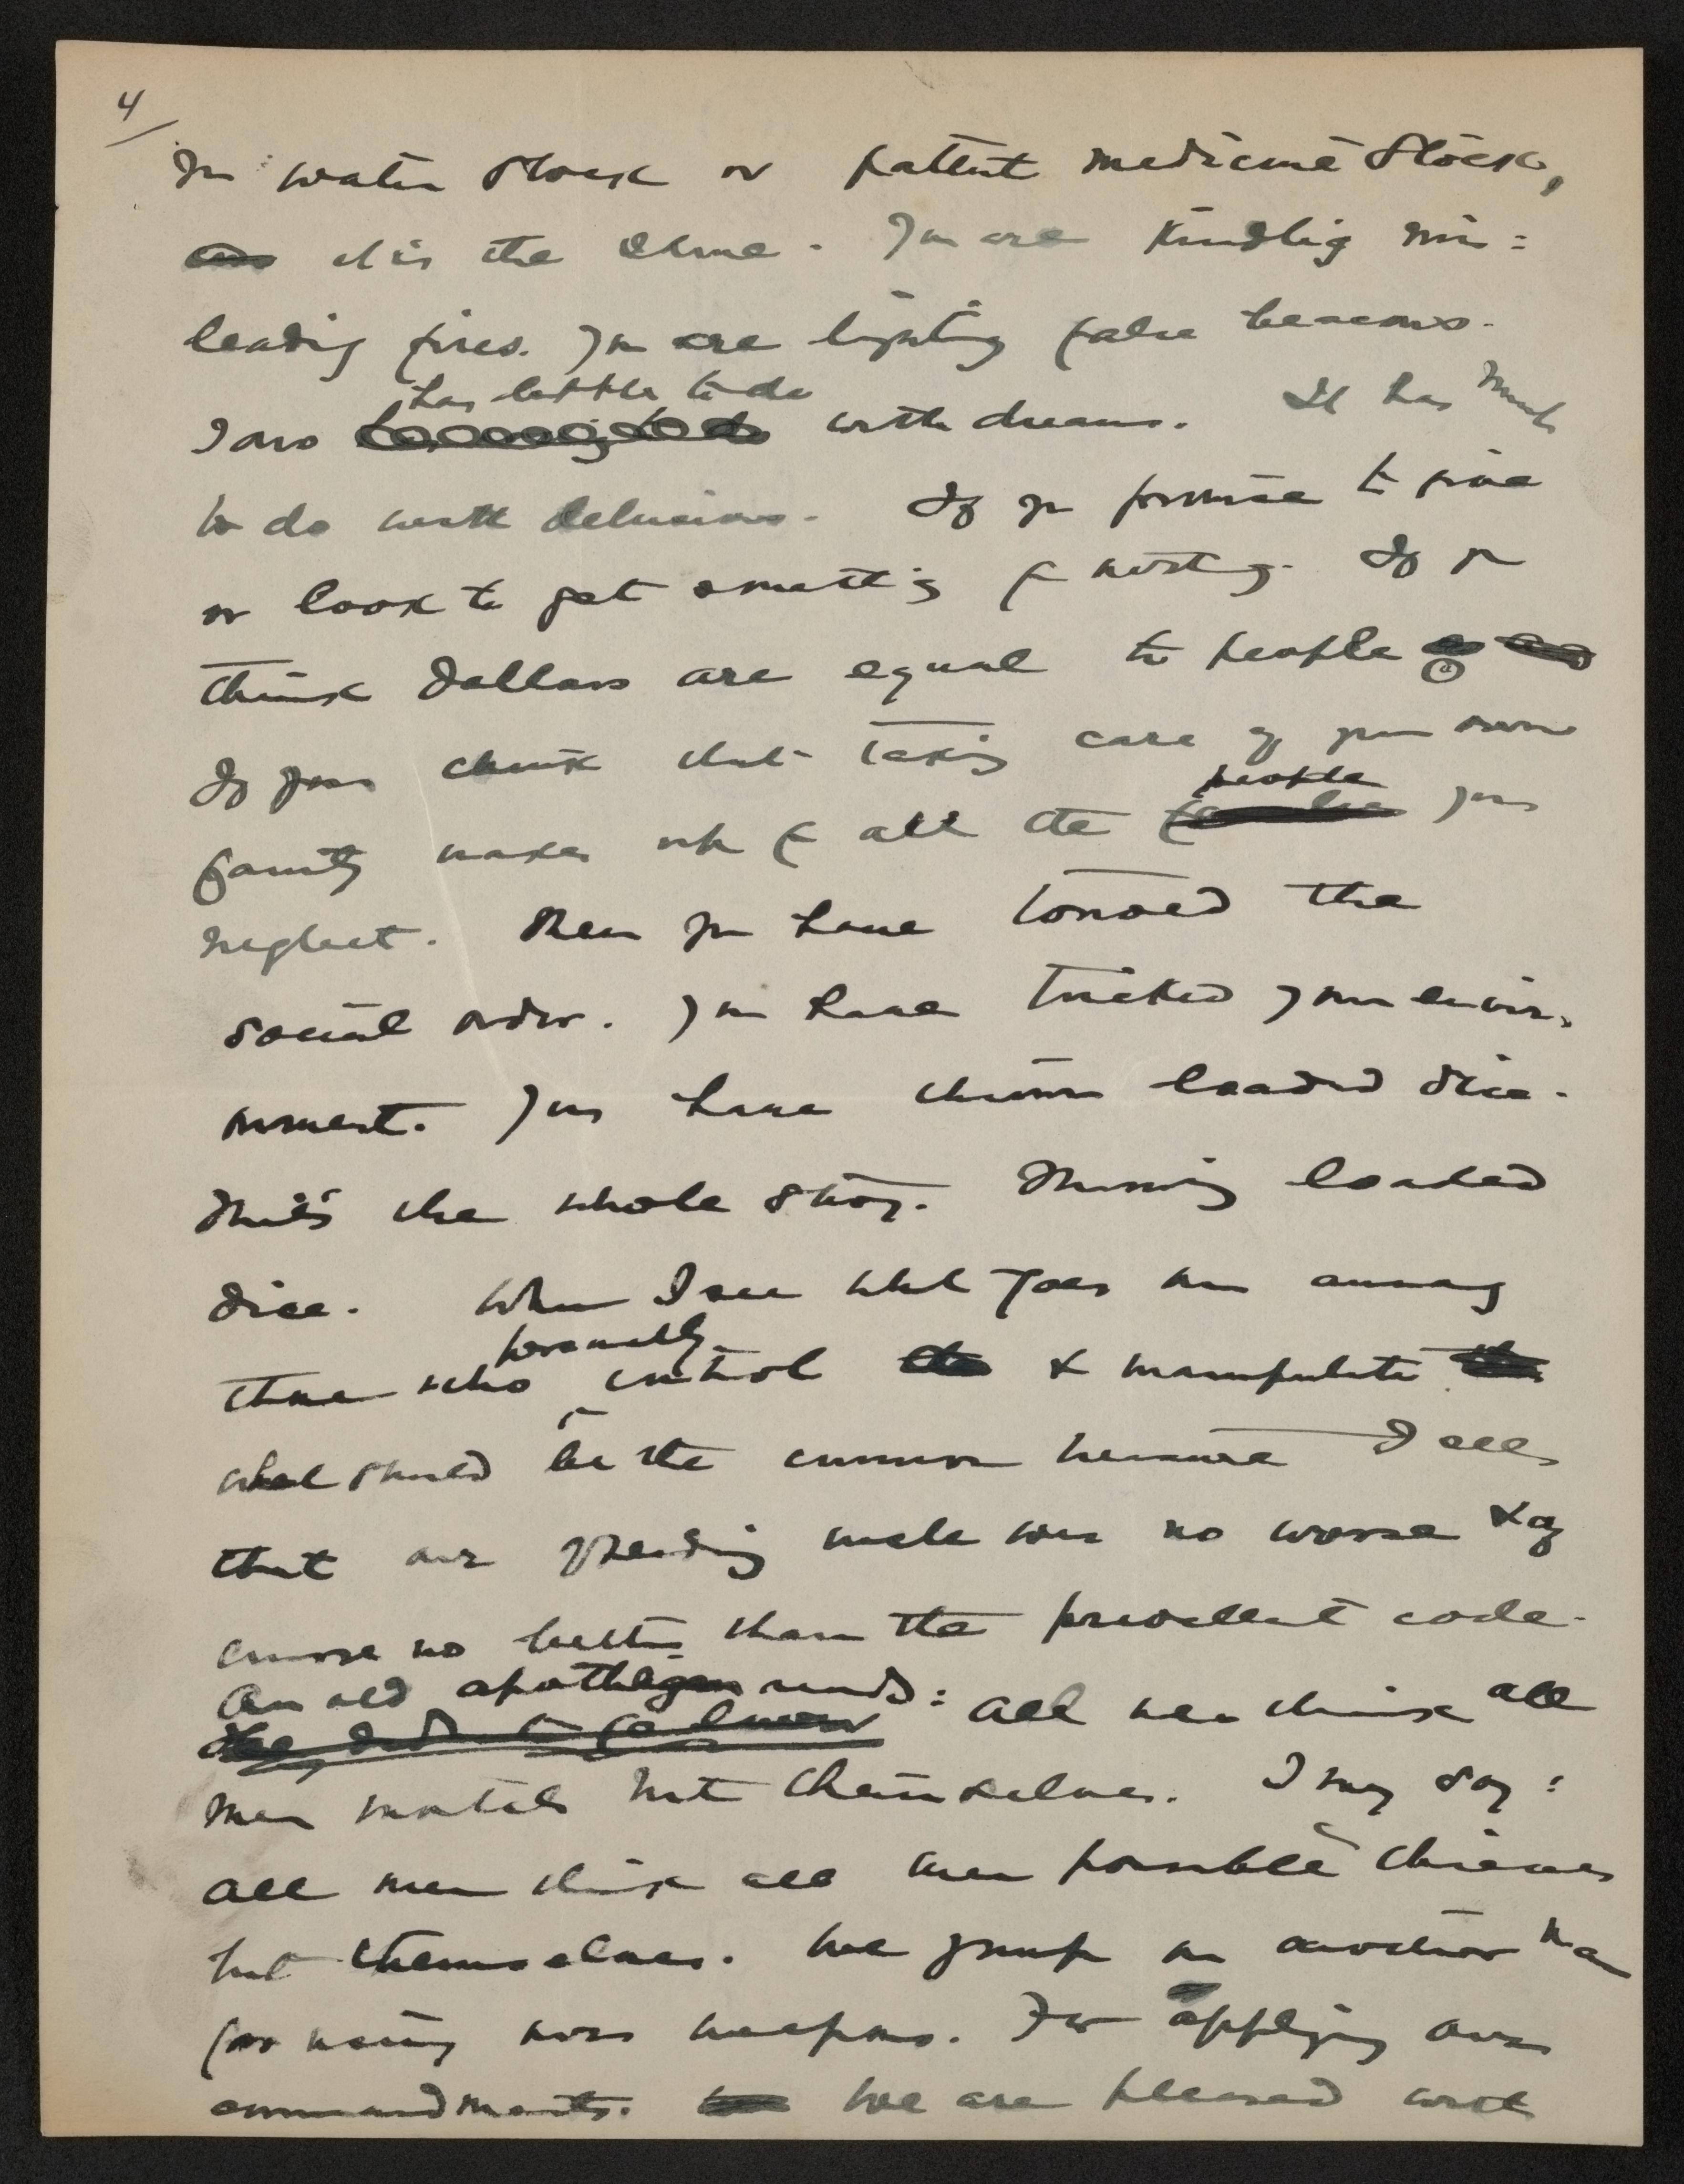 4/
In water stock or patent medicine stock,
it is the same. You are kindling mis=
leading fires. You are lighting false beacons.
has little to do
with dreams. It has much
to do with delusions. If you promise to give
or look to get something for nothing. If you
think dollars are equal to people
If you think that taking care of your own
people
family makes up for all the you
neglect. Then you have loaded the
social order. You have tricked your envir-
onment. You have thrown loaded dice.
That's the whole story. Throwing loaded
dice. When I see what goes on among
personally
those who control & manipulate
what should be the common treasure I see
that our uncle was no worse & of
course no better than the prevalent code.
An old apothegm reads: All men think all
men mortal but themselves. I may say:
all men think all men possible thieves
but themselves. We jump on another man
for using our weapons. For applying our
commandments. We are pleased with